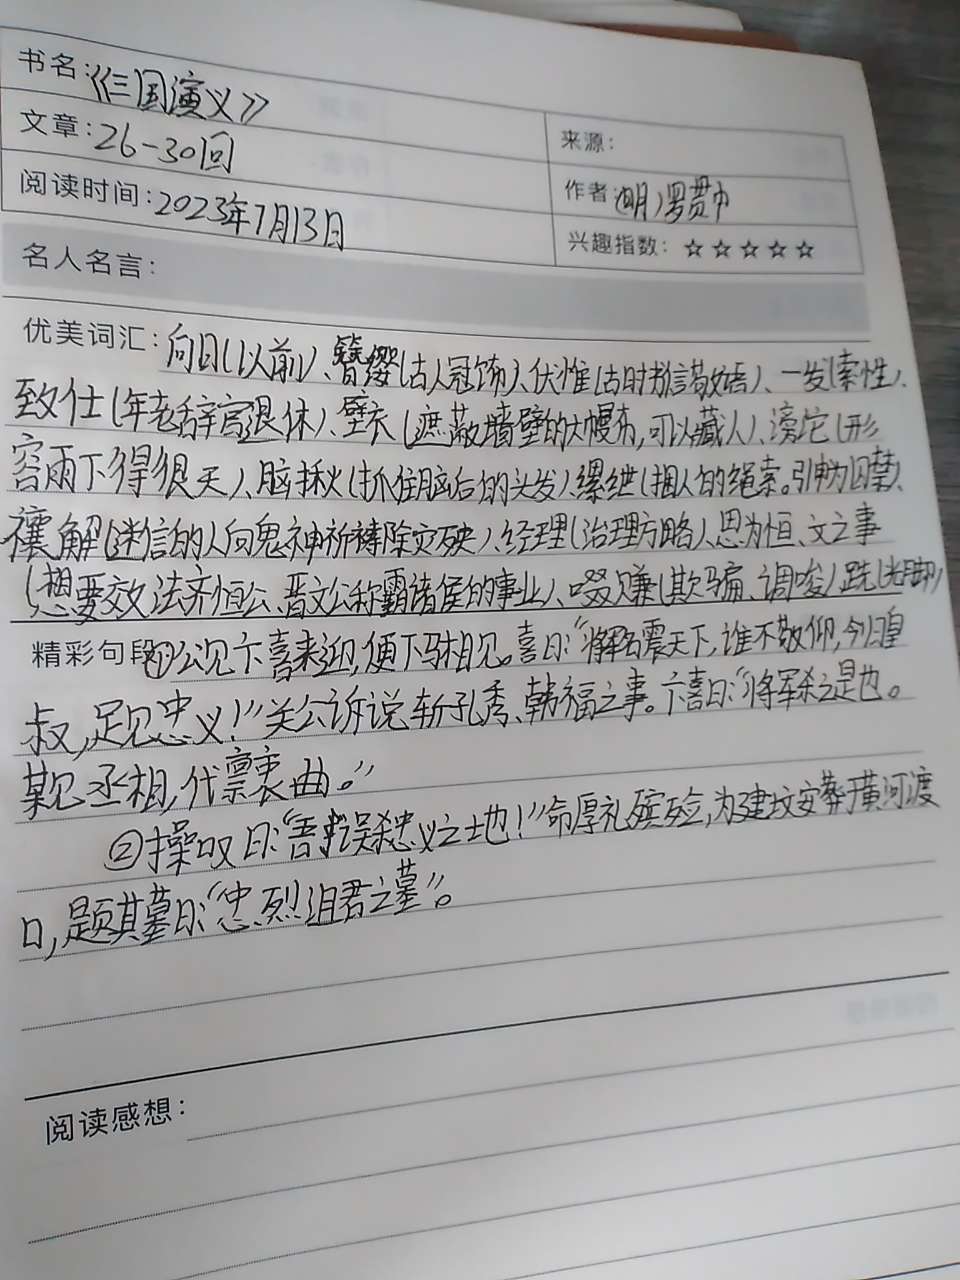 书名:《三国演义》
文章:26-30回
来源:
阅读时间:2023年7月13日
作者(明)罗贯中
兴趣指数:☆☆☆☆☆
名人名言:
优美词汇:向日(以前)、簪缨(古人冠饰)、伏惟(古时书信敬语)、一发(索性)、
致仕(年老辞官退休)、壁衣(遮蔽墙壁的大幔布,可以藏人)、滂沱(形
容雨下得很大)、脑揪(抓住脑后的头发)、缧绁(捆人的绳索。引申为囚禁)、
禳解(迷信的人向鬼神祈祷除灾殃)、经理(治理方略)、思为恒、文之事
(想要效法齐恒公、晋文公称霸诸侯的事业)、啜赚(欺骗、调唆)、跣(光脚)
精彩句段①公见卞喜来迎,便下马相见。喜曰:“将军名震天下,谁不敬仰,今归皇
叔,足见忠义!”关公诉说斩孔秀、韩福之事。卞喜曰:“将军杀之是也。
某见丞相,代禀衷曲。”
②操叹曰:“吾误杀忠义之士也!”命厚礼殡殓,为建坟安葬于黄河渡
口,题其墓曰:“忠烈沮君之墓”。
阅读感想: